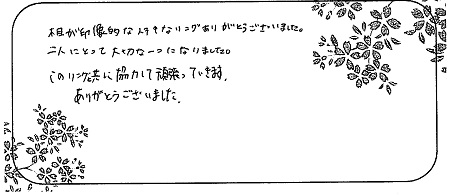 木目が印象的なステキなリングありがとうございました。
二人にとって大切な一つになりました。
このリング共に協力して頑張っていきます。
ありがとうございました。